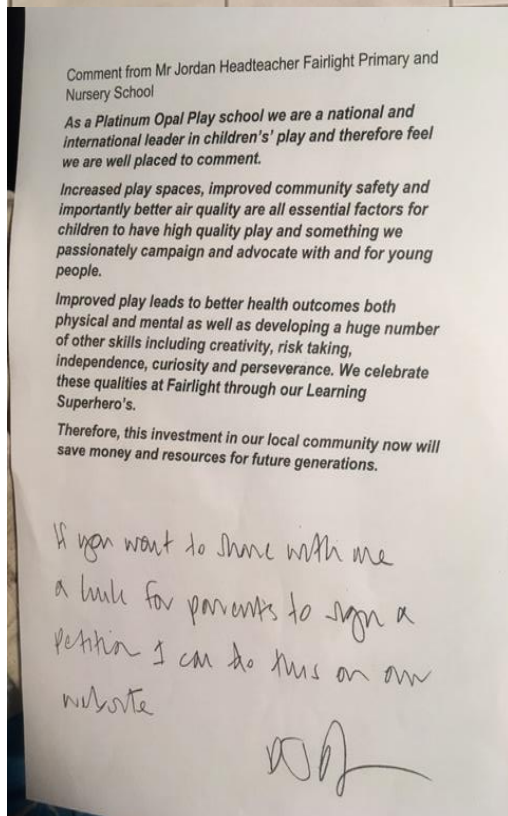 Comment from Mr Jordan Headteacher Fairlight Primary and
Nursery School
As a Platinum Opal Play school we are a national and
international leader in children's' play and therefore feel
we are well placed to comment.
Increased play spaces, improved community safety and
importantly better air quality are all essential factors for
children to have high quality play and something we
passionately campaign and advocate with and for young
people.
Improved play leads to better health outcomes both
physical and mental as well as developing a huge number
of other skills including creativity, risk taking,
independence, curiosity and perseverance. We celebrate
these qualities at Fairlight through our Learning
Superhero's.
Therefore, this investment in our local community now will
save money and resources for future generations.
If you want to share with me
a link for parents to sign a
petition I can do this on our
website